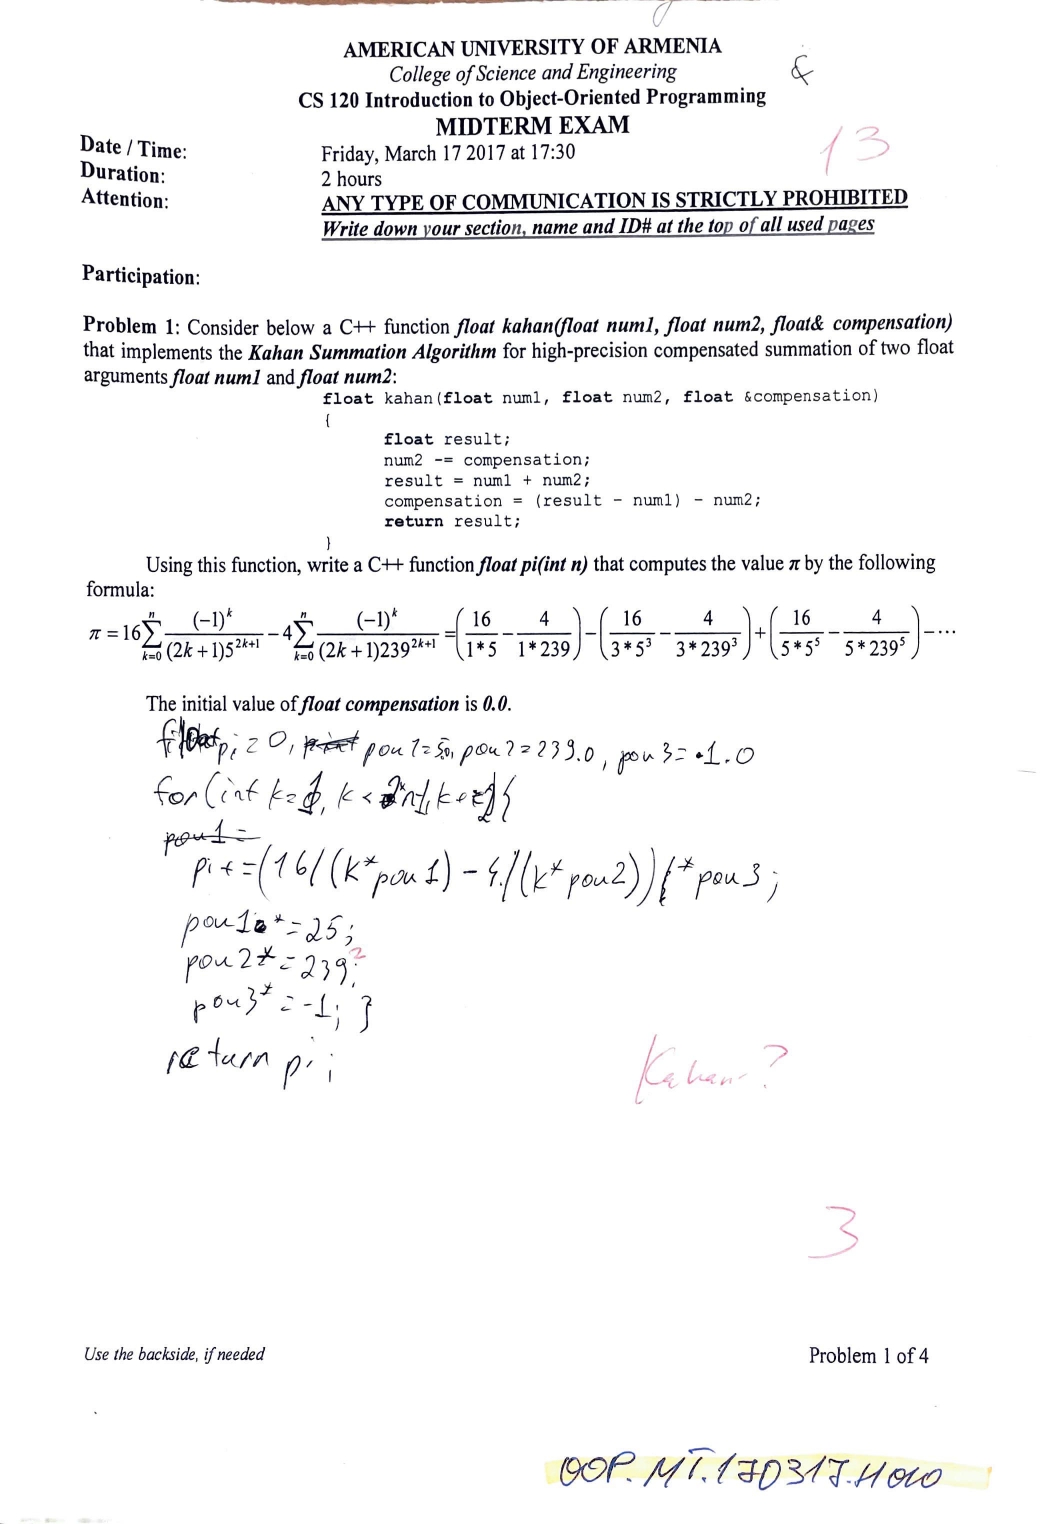 AMERICAN UNIVERSITY OF ARMENIA
College of Science and Engineering
CS 120 Introduction to Object-Oriented Programming
MIDTERM EXAM
13
Date / Time: Friday, March 17 2017 at 17:30
Duration: 2 hours
Attention: ANY TYPE OF COMMUNICATION IS STRICTLY PROHIBITED
Write down your section, name and ID# at the top of all used pages
Participation:
Problem 1: Consider below a C++ function float kahan(float num1, float num2, float& compensation)
that implements the Kahan Summation Algorithm for high-precision compensated summation of two float
arguments float num1 and float num2:
float kahan(float num1, float num2, float &compensation)
{
float result;
num2 -= compensation;
result = num1 + num2;
compensation = (result - num1) - num2;
return result;
}
Using this function, write a C++ function float pi(int n) that computes the value π by the following
formula:
π = 16∑_{k=0}^{n} (-1)^k / (2k+1)5^{2k+1} - 4∑_{k=0}^{n} (-1)^k / (2k+1)239^{2k+1} = (16/1*5 - 4/1*239) - (16/3*5^3 - 4/3*239^3) + (16/5*5^5 - 4/5*239^5) - ...
The initial value of float compensation is 0.0.
float pi = 0, pou1=5.0, pou2=239.0, pou3=1.0
for(int k=1,
pou1=
pi+=(16/(k*pou1)-4./(k*pou2))*pou3;
pou1*=25;
pou2*=239?;
pou3*=-1; }
return pi;
Kahan-?
3
Use the backside, if needed
Problem 1 of 4
OOP.MT.170317.H010